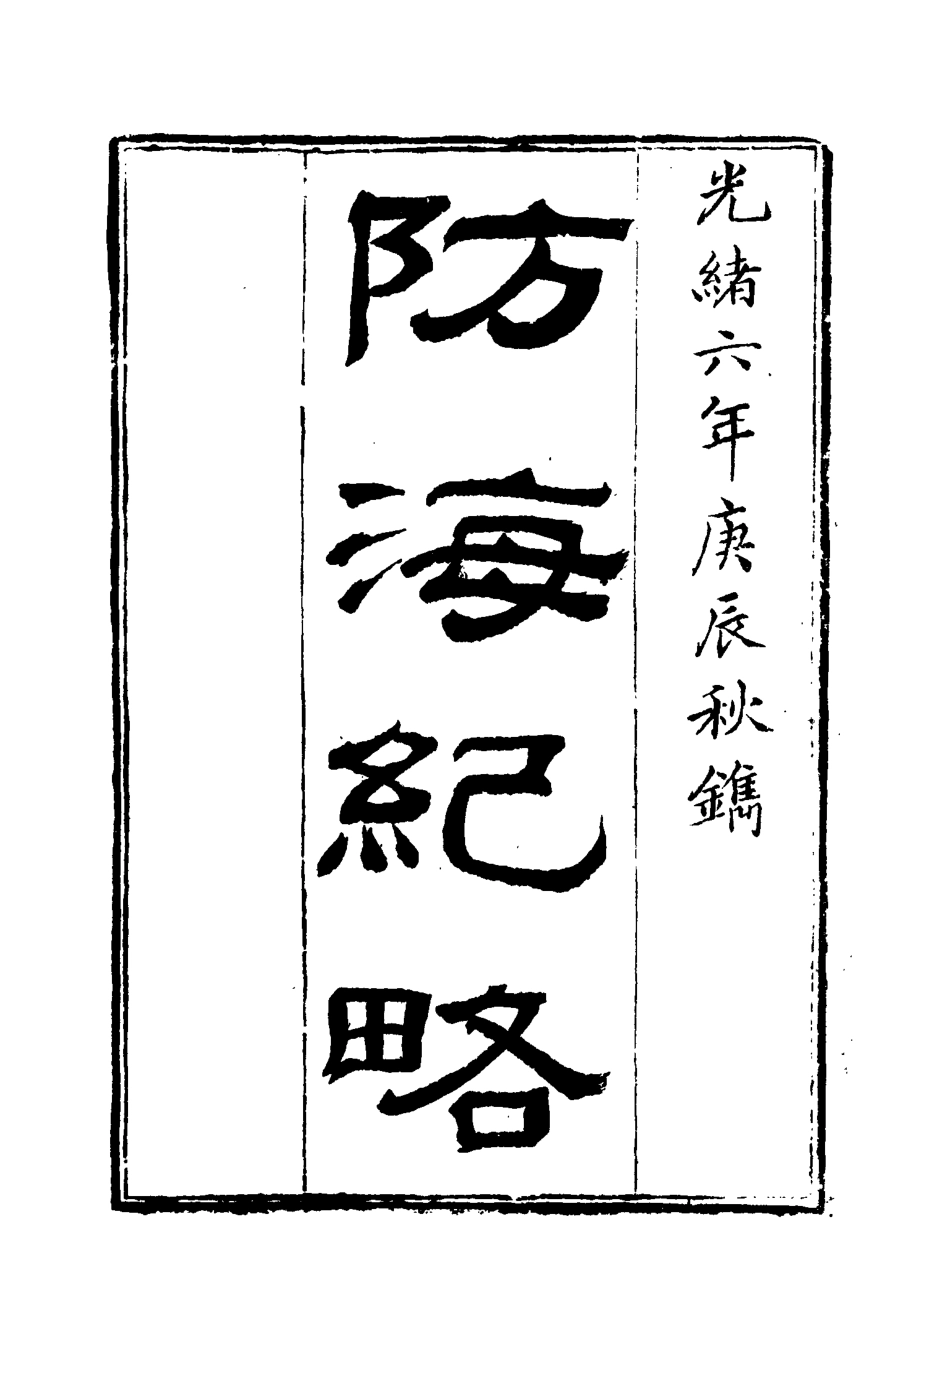 光緒六年庚辰秋鐫
防海紀略